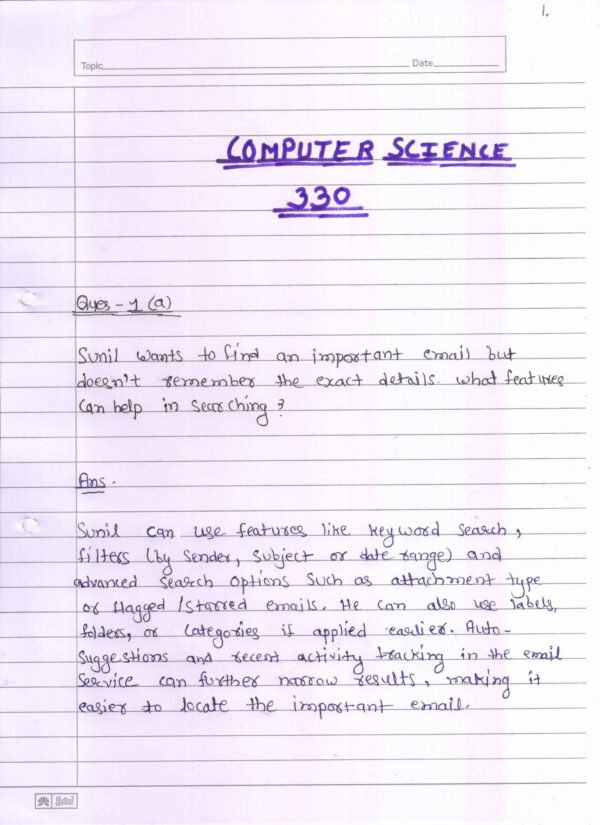 1.
Topic Date
COMPUTER SCIENCE
330
Ques - 1 (a)
Sunil wants to find an important email but
doesn't remember the exact details. what features
can help in searching?
Ans.
Sunil can use features like keyword search,
filters (by sender, subject or date range) and
advanced search options such as attachment type
or flagged/starred emails. He can also use labels,
folders, or categories if applied earlier. Auto-
suggestions and recent activity tracking in the email
service can further narrow results, making it
easier to locate the important email.